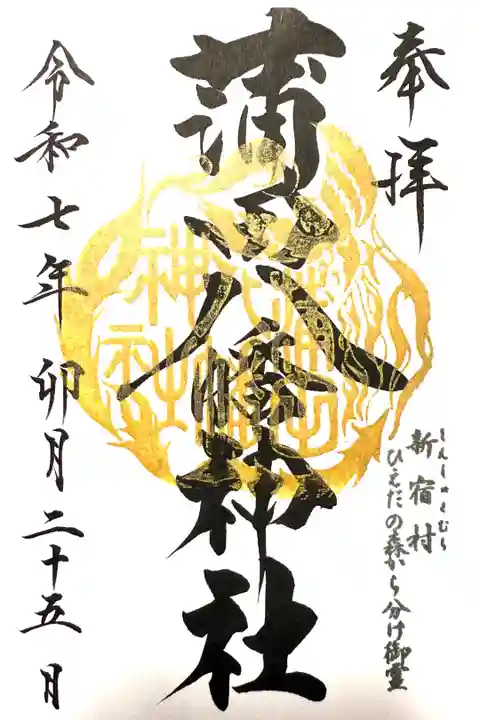 奉拝
しんしゅくむら
新宿村
ひえだの森から分け御霊
蒲田八幡神社
蒲田
八幡
神社
令和七年卯月二十五日